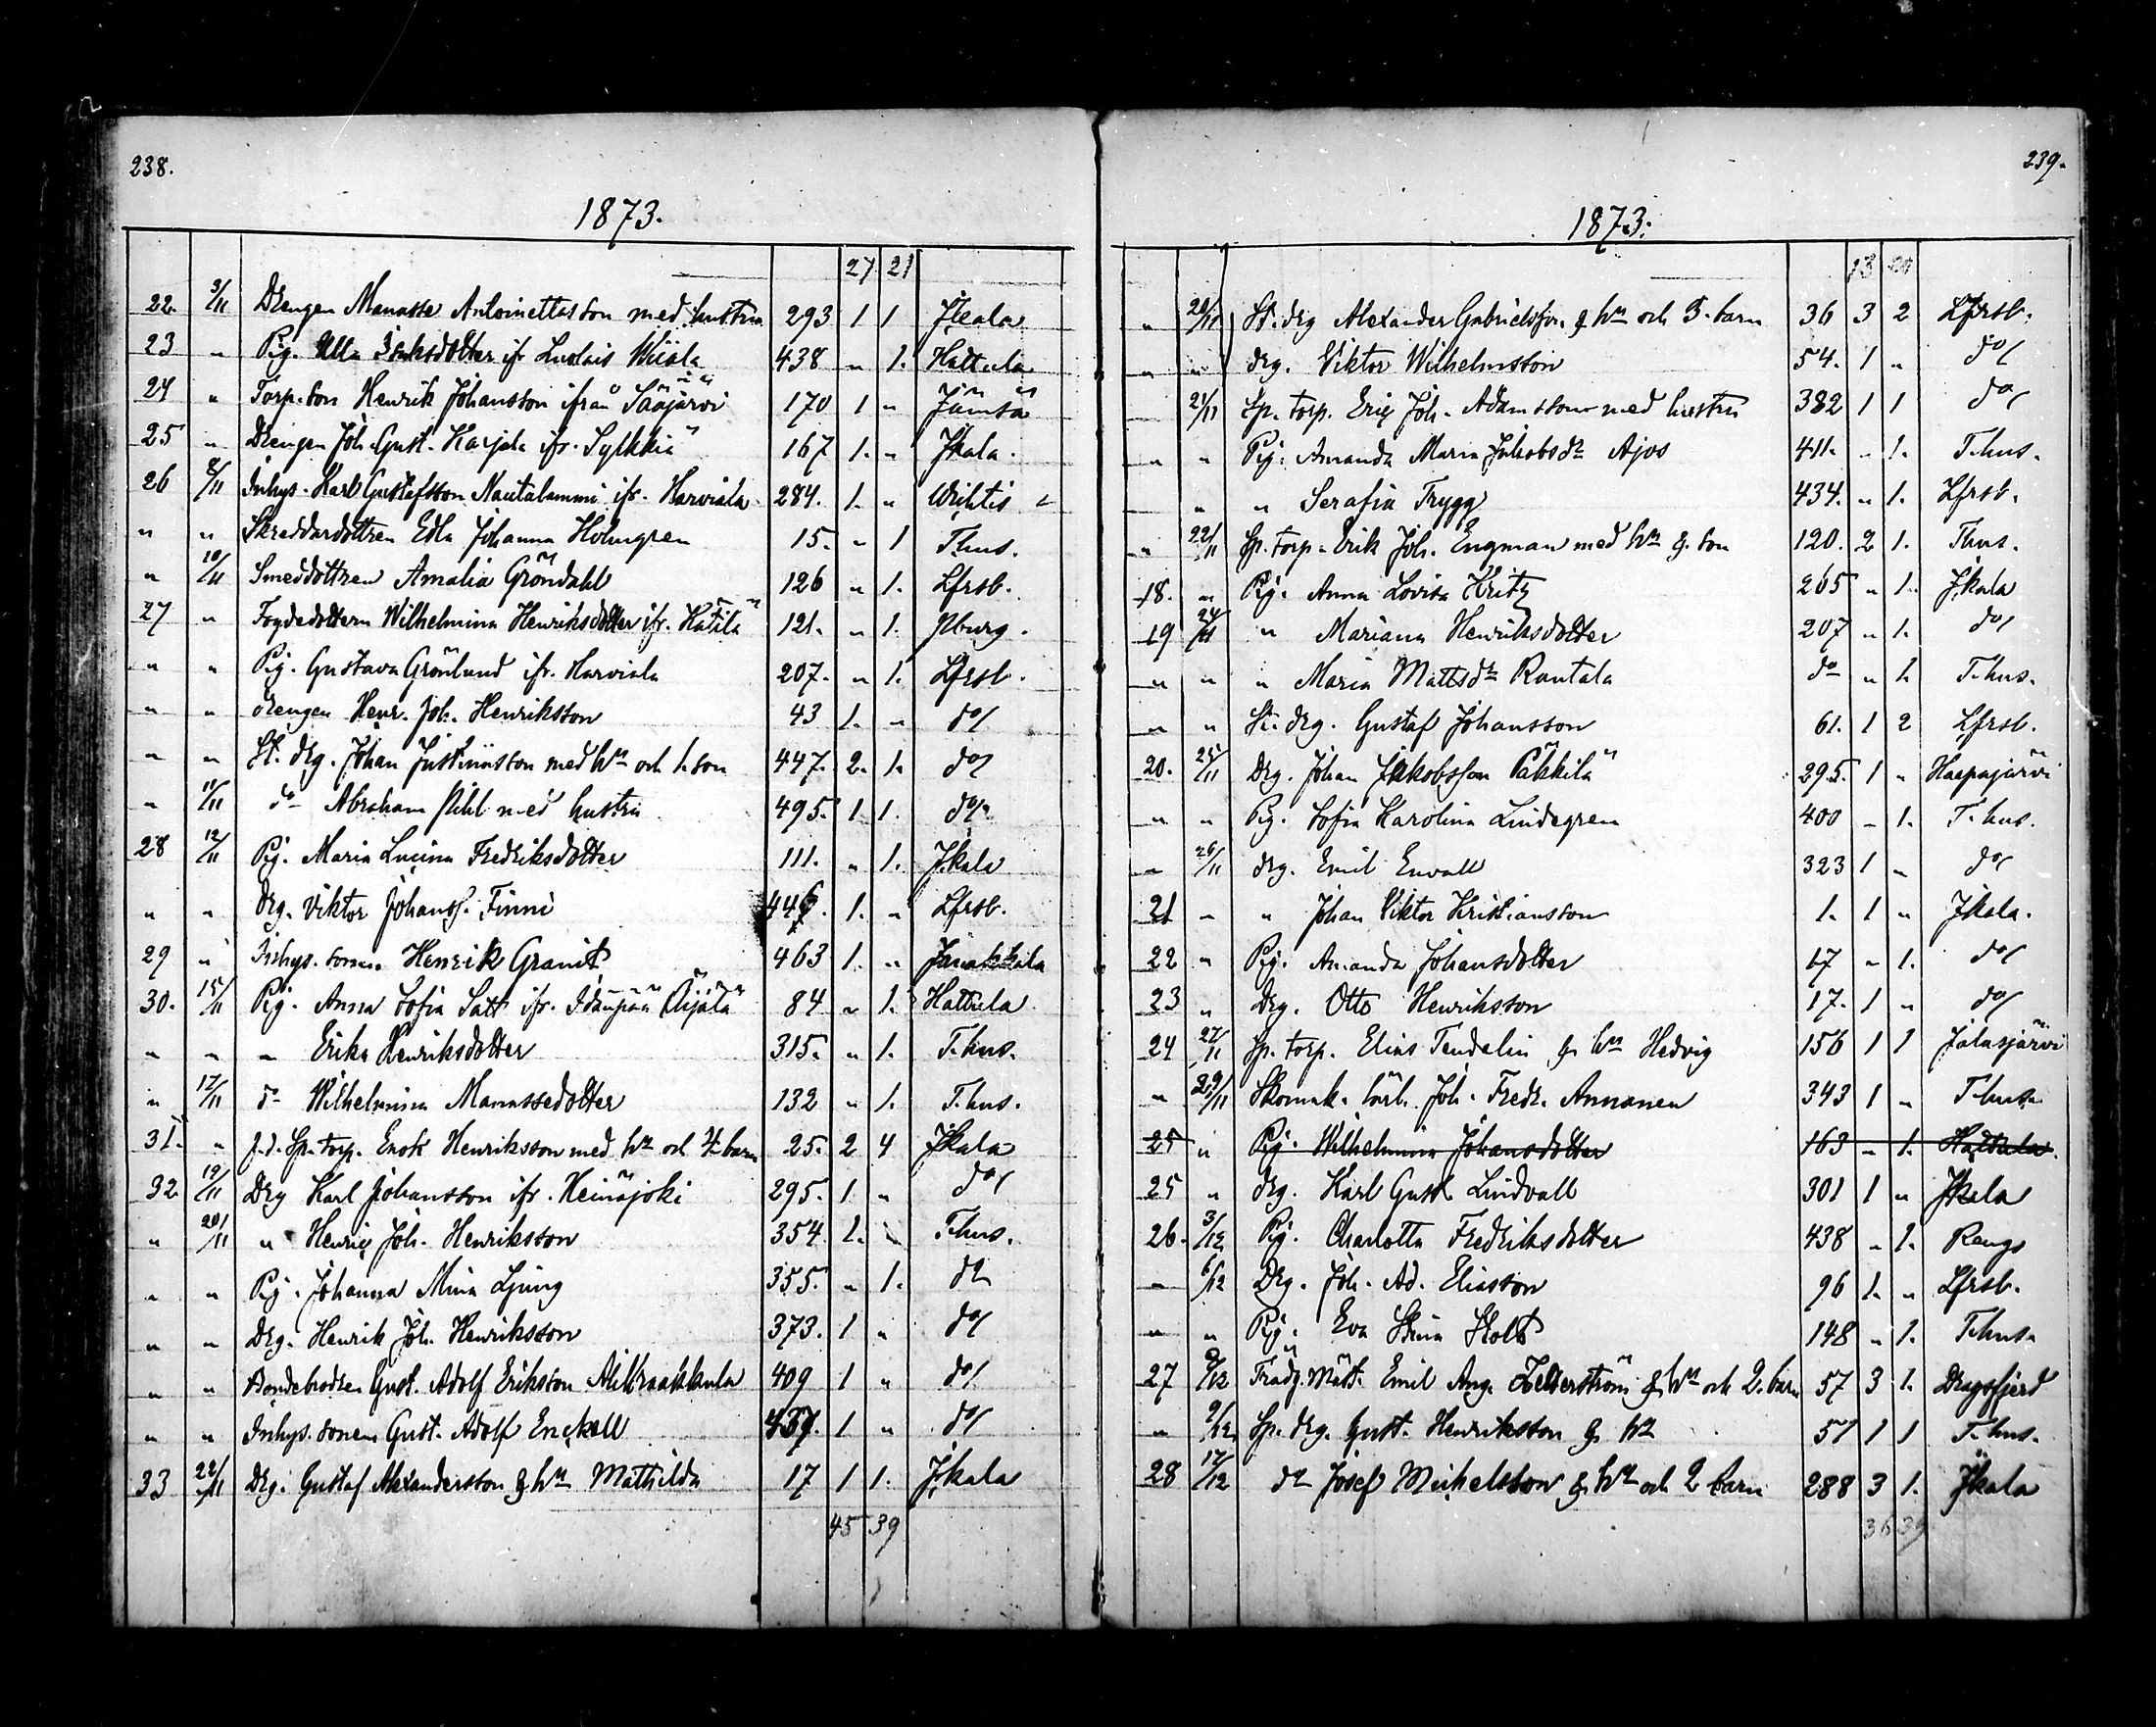 238.
1873.
27 21
22. 3/11 Drengen Manasse Antoinettasson med hustru 293 1 1 Jkala
23 " Pig. Ulla Eriksdotter ifr Luolais Wiiala 438 " 1. Hattula
24 " Torp. son Henrik Johansson ifrån Sääjärvi 170 1 " Jämsä
25 " Drengen Joh. Gust. Karjala ifr. Sylkkiä 167 1. " Jkala.
26 8/11 Inhys. Karl Gustafsson Nautalammi ifr. Harviala 284. 1. " Wichtis
" " Skreddardottren Edla Johanna Holmgren 15. " 1 Thus.
" 10/11 Smeddottren Amalia Gröndahl 126 " 1. Lfrsb.
27 " Fogdedottern Wilhelmina Henriksdotter ifr. Katila 121. " 1. Hburg.
" " Pig. Gustava Grönlund ifr. Harviala 207. " 1. Lfrsb.
" " drengen Henr. Joh. Henriksson 43 1. " do/
" " St. drg. Johan Justinusson med hu och 1. son 447. 2. 1. do/
" 11/11 do Abraham Pihl med hustru 495. 1. 1. do/.
28 12/11 Pig. Maria Lucina Fredriksdotter 111. " 1. Jkala
" " Drg. Viktor Johanss. Finni 446. 1. " Lfrsb.
29 " Inhys. sonen Henrik Granit 463 1. " Janakkala
30. 15/11 Pig. Anna Sofia Satt ifr. Idänpää Äijälä 84 " 1. Hattula
" " " Erika Henriksdotter 315. " 1. T.hus.
" 17/11 do Wilhelmina Manassedotter 132 " 1. T.hus.
31. " f.d. Sp. torp. Enok Henriksson med hu och 4 barn 25. 2 4 Jkala
32. 19/11 Drg Karl Johansson ifr. Heinäjoki 295. 1. " do/
" 20/11 " Henric Joh. Henriksson 354. 1. " T.hus.
" " Pig. Johanna Mina Ljung 355. " 1. do
" " Drg. Henrik Joh. Henriksson 373. 1 " do/
" " Bondebrodren Gust. Adolf Eriksson Alikraakkula 409 1 " do/
" " Inhys. sonen Gust. Adolf Enckell 437. 1 " do/
33 22/11 Drg. Gustaf Alexandersson & hu Mathilda 17 1 1. Jkala
45 39
239.
1873.
13 20
" 20/11 St. drg Alexander Gabrielsson & hu och 3. barn 36 3 2 Lfrsb.
" " drg. Viktor Wilhelmsson 54. 1 " do/
21/11 Sp. torp. Eric Joh. Adamsson med hustru 382 1 1 do/
" " Pig. Amanda Maria Jakobsdr Ajos 411. " 1. T.hus.
" " Serafia Trygg 434. " 1. Lfrsb.
" 22/11 Sp. torp. Erik Joh. Engman med hu & son 120. 2 1. Thus.
18. " Pig. Anna Lovisa Kritz 265 " 1. Jkala
19 24/11 " Mariana Henriksdotter 207 " 1. do/
" " " Maria Mattsdr Rantala do " 1. T.hus.
" " St. drg. Gustaf Johansson 61. 1 2 Lfrsb.
20. 25/11 Drg. Johan Jakobsson Päkkilä 295. 1 " Haapajärvi
" " Pig. Sofia Karolina Lindegren 400 - 1. T.hus.
" 26/11 drg. Emil Envall 323 1 " do/
21 " " Johan Viktor Kristiansson 1. 1 " Jkala.
22 " Pig. Amanda Johansdotter 17 " 1. do/
23 " Drg. Otto Henriksson 17. 1 " do/
24 27/11 Sp. torp. Elias Tendelin & hu Hedvig 156 1 1 Jalasjärvi
" 29/11 Skomak. lärl. Joh. Fredr. Annanen 343 1 " T.hus.
25 " Pig. Wilhelmina Johansdotter 163 - 1. Hattula.
25 " drg. Karl Gust. Lindvall 301 1 " Jkala
26. 3/12 Pig. Charlotta Fredriksdotter 438 " 1. Rengo
" 6/12 Drg. Joh. Ad. Eliasson 96 1. " Lfrsb.
" " Pig. Eva Stina Stolt 148 " 1. T.hus.
27 9/12 Trädg. Mäst. Emil Aug. Zetterström & hu och 2. barn 57 3 1. Dragsfjerd
" 9/12 Sp. drg. Gust. Henriksson & hu 57 1 1 T.hus.
28 17/12 do Josef Michelsson & hu och 2 barn 288 3 1. Jkala
36 39